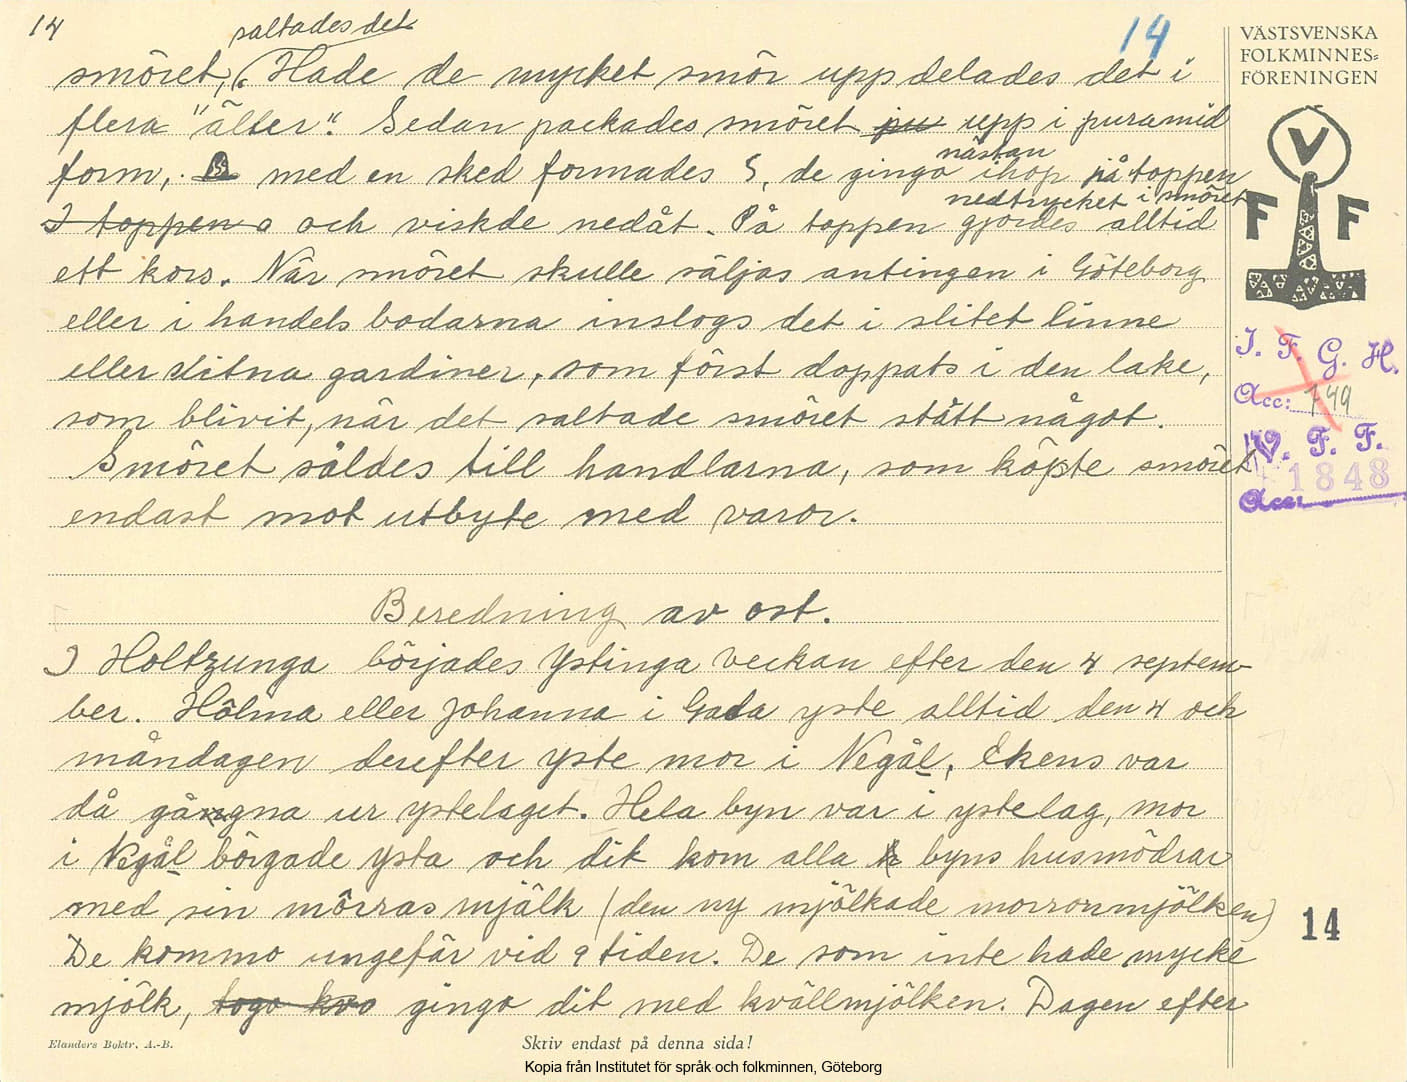 14
14
saltades det
smöret, Hade de mycket smör uppdelades det i
flera "älter". Sedan packades smöret pu upp i puramid
form, med en sked formades S, de gingo nästan ihop på toppen
I toppen o och viskde nedåt. På toppen gjordes nedtrycket i smöret alltid
ett kors. När smöret skulle säljas antingen i Göteborg
eller i handelsbodarna inslogs det i slitet linne
eller slitna gardiner, som först doppats i den lake,
som blivit, när det saltade smöret stått något.
Smöret såldes till handlarna, som köpte smöret
endast mot utbyte med varor.
Beredning av ost.
I Holtzunga börjades ystinga veckan efter den 4 septem-
ber. Hölma eller Johanna i Gada yste alltid den 4 och
måndagen derefter yste mor i Negål. Ekens var
då gångna ur ystelaget. Hela byn var i ystelag, mor
i Negål börgade ysta och dit kom alla byns husmödrar
med sin mörras mjälk (den ny mjölkade morronmjölken)
De kommo ungefär vid 9 tiden. De som inte hade mycke
mjölk, togo kvo gingo dit med kvällmjölken. Dagen efter
VÄSTSVENSKA
FOLKMINNES=
FÖRENINGEN
V
F F
I. F. G. H.
Acc: 749
V. F. F.
1848
Acc:
14
Elanders Boktr. A.-B.
Skriv endast på denna sida!
Kopia från Institutet för språk och folkminnen, Göteborg